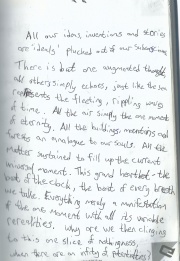 All our ideas, inventions and stories
are 'ideals' plucked out of our subconscious.
There is but one augmented thought
all others simply echoes, just like the sun
represents the fleeting, rippling ways
of time. All the air simply the one moment
of eternity. All the buildings, memories and
forests an analogue to our souls. All the
matter sustained to fill up the current
universal moment. This grand heartbeat - the
beat of the clock, the beat of every breath
we take. Everything merely a manifestation
of the one moment with all its variable
Why are we then clinging
to this one slice of nothingness,
when there are an infinity of potentialities